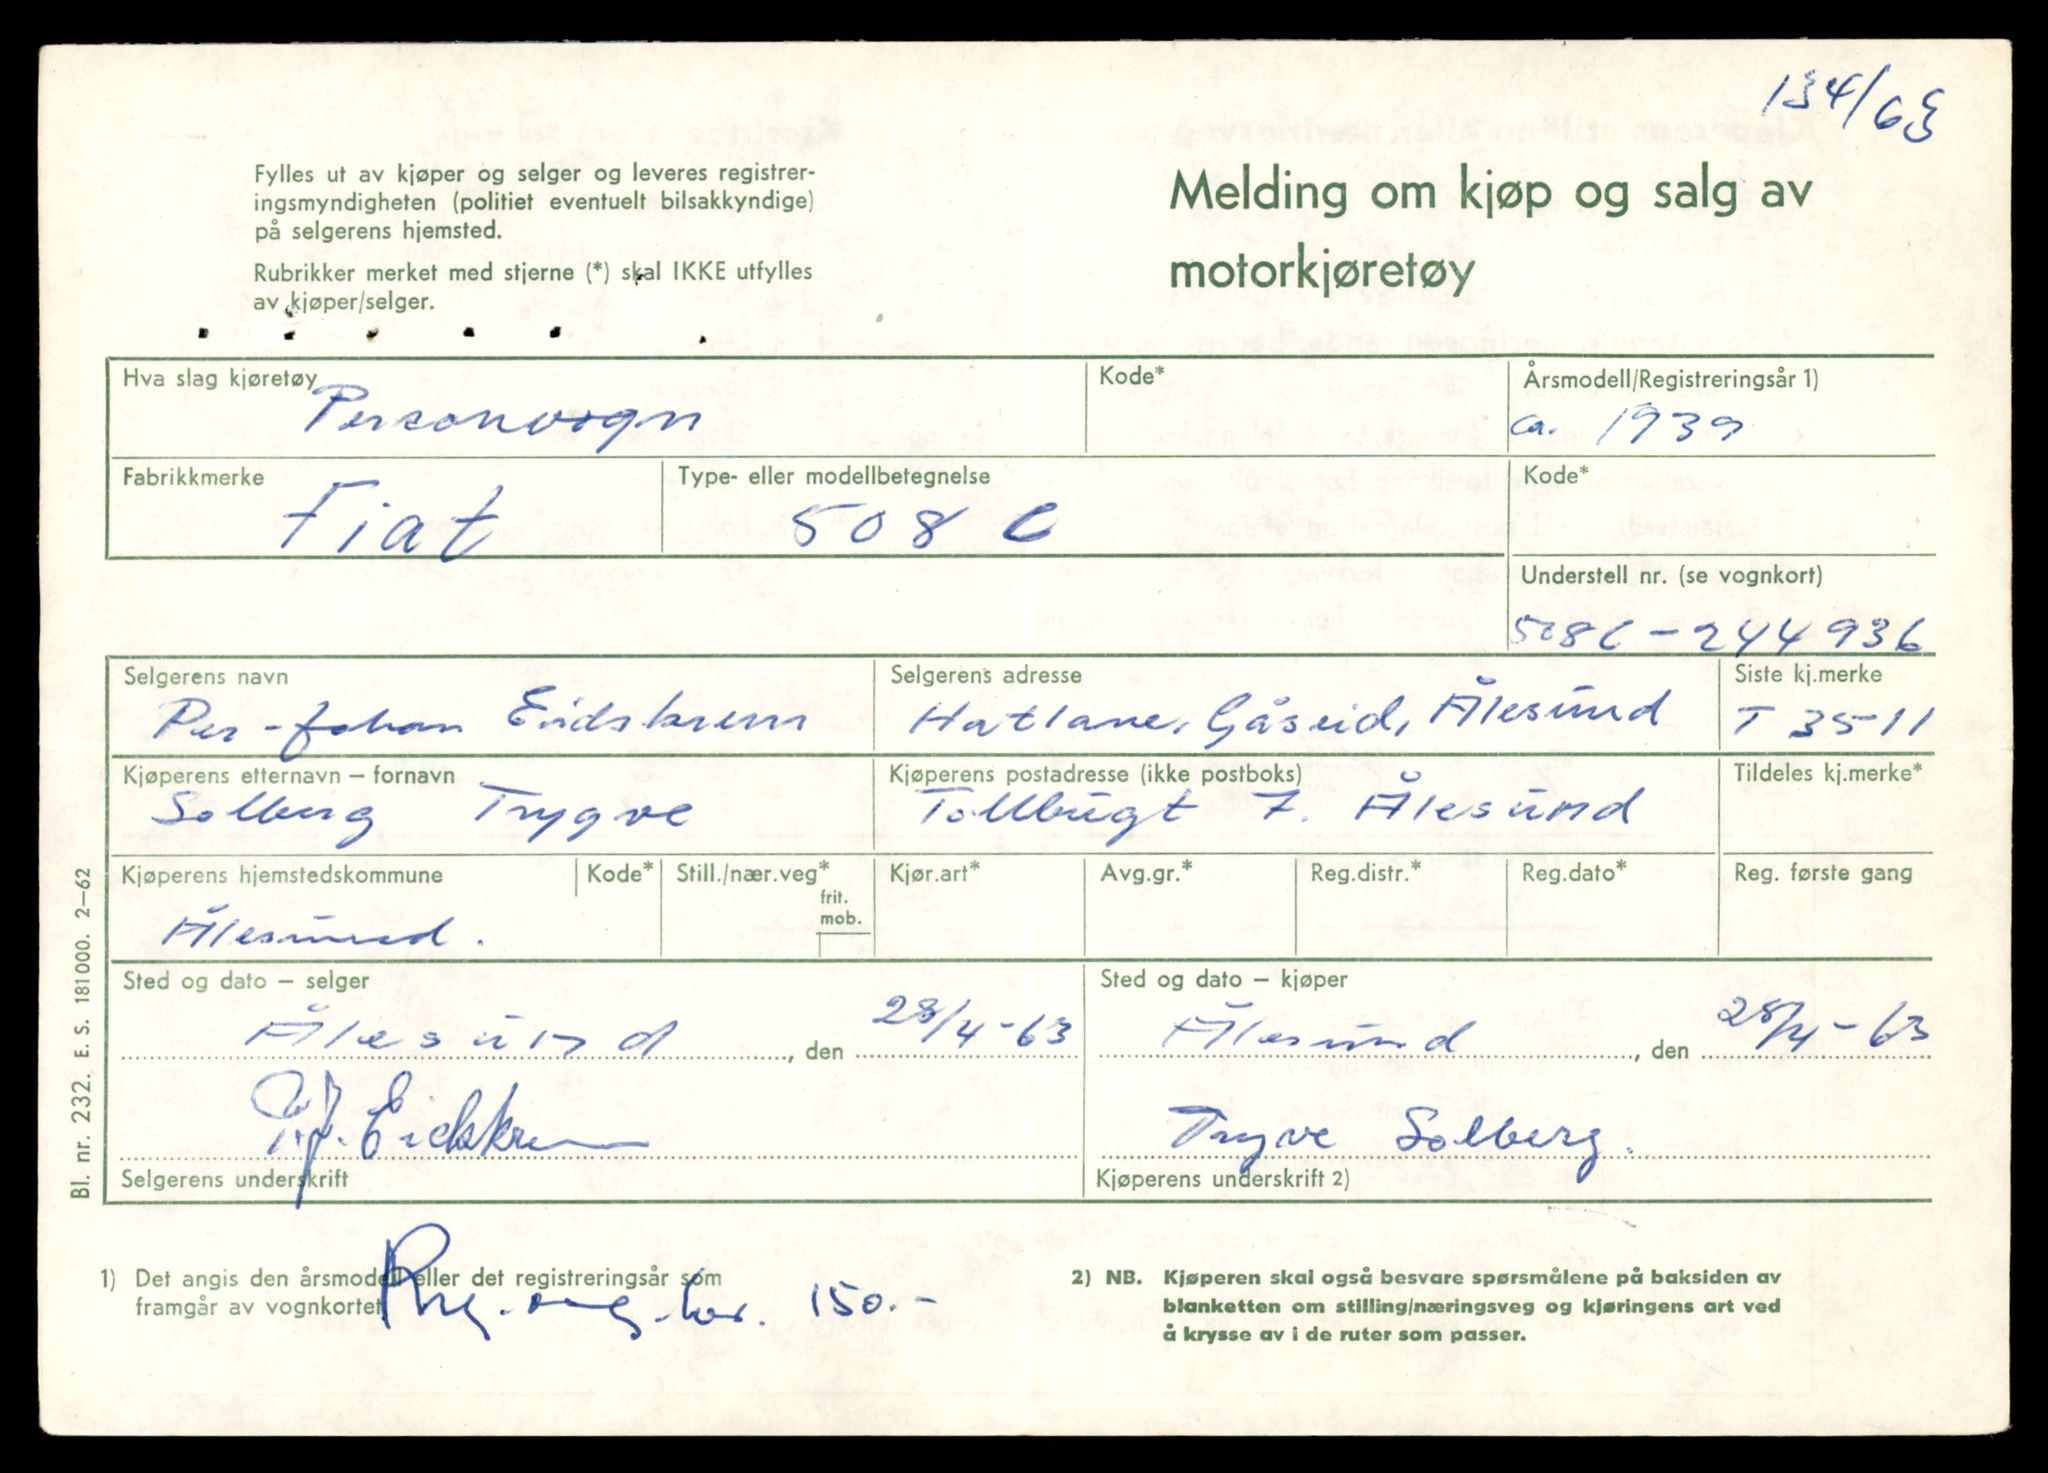 134/63
Fylles ut av kjøper og selger og leveres registrer-
ingsmyndigheten (politiet eventuelt bilsakkyndige)
på selgerens hjemsted.
Rubrikker merket med stjerne (*) skal IKKE utfylles
av kjøper/selger.
Melding om kjøp og salg av
motorkjøretøy
Hva slag kjøretøy
Personvogn
Kode*
Årsmodell/Registreringsår 1)
ca. 1939
Fabrikkmerke
Fiat
Type- eller modellbetegnelse
508 C
Kode*
Understell nr. (se vognkort)
508C-244936
Selgerens navn
Per-Johan Eidskrem
Selgerens adresse
Hatlane, Gåseid, Ålesund
Siste kj.merke
T 3511
Kjøperens etternavn – fornavn
Solberg Trygve
Kjøperens postadresse (ikke postboks)
Tollbugt 7. Ålesund
Tildeles kj.merke*
Kjøperens hjemstedskommune
Ålesund.
Kode*
Still./nær.veg*
frit.
mob.
Kjør.art*
Avg.gr.*
Reg.distr.*
Reg.dato*
Reg. første gang
Sted og dato – selger
Ålesund, den 28/4-63
P.J. Eidskrem
Selgerens underskrift
Sted og dato – kjøper
Ålesund, den 28/4-63
Trygve Solberg.
Kjøperens underskrift 2)
1) Det angis den årsmodell eller det registreringsår som
framgår av vognkortet
150.-
2) NB. Kjøperen skal også besvare spørsmålene på baksiden av
blanketten om stilling/næringsveg og kjøringens art ved
å krysse av i de ruter som passer.
Bl. nr. 232. E. S. 181000. 2–62